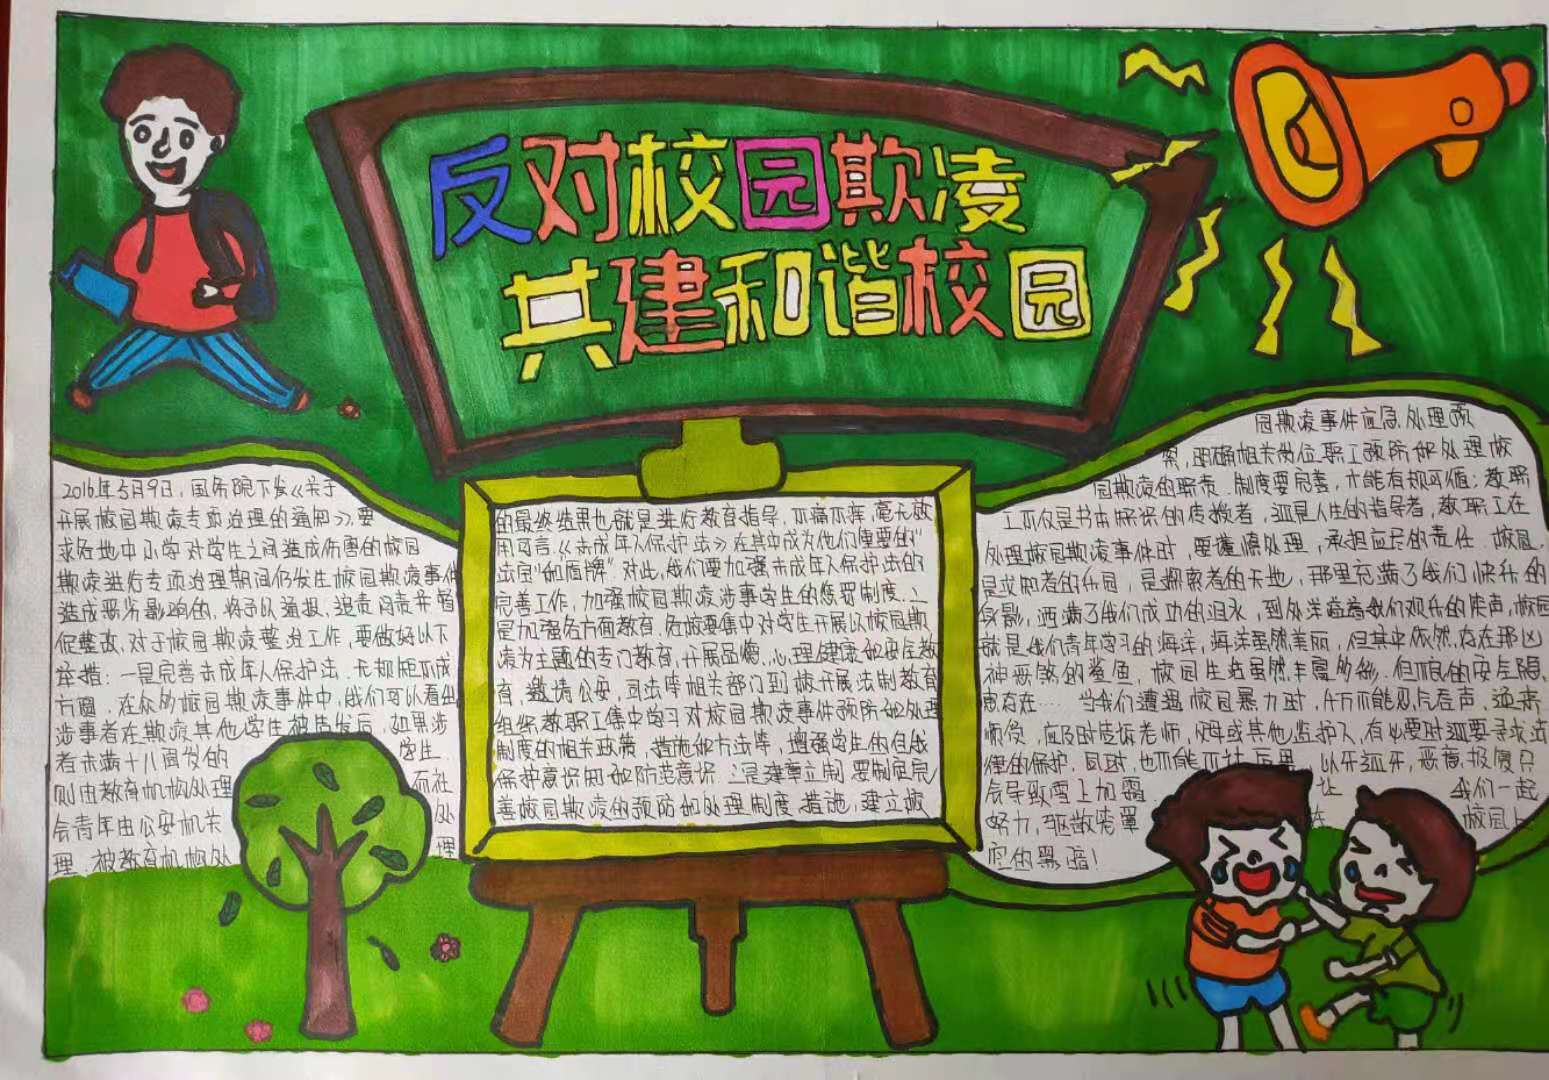 反对校园欺凌
共建和谐校园
2016年5月9日，国务院下发《关于
开展校园欺凌专项治理的通知》，要
求各地中小学对学生之间造成伤害的校园
欺凌进行专项治理期间仍发生校园欺凌事件
造成恶劣影响的，将予以通报、追责问责并督
促整改，对于校园欺凌整治工作，要做好以下
举措：一是完善未成年人保护法，无规矩不成
方圆，在众多校园欺凌事件中，我们可以看出
涉事者在欺凌其他学生被告发后，如果涉
者未满十八周岁的 学生
则由教育机构处理 而社
会青年由公安机关 处
理，被教育机构处 理
的最终结果也就是进行教育指导，不痛不痒，毫无效
用可言，《未成年人保护法》在其中成为他们重要的“
法宝”和盾牌”对此，我们要加强未成年人保护法的
完善工作，加强校园欺凌涉事学生的惩罚制度，二
是加强各方面教育，各校要集中对学生开展以校园欺
凌为主题的专门教育，开展品德、心理健康和安全教
育，邀请公安，司法等相关部门到校开展法制教育
组织教职工集中学习对校园欺凌事件预防和处理
制度的相关政策，措施和方法等，增强学生的自我
保护意识和防范意识 三是建章立制，要制定完
善校园欺凌的预防和处理制度、措施，建立校
园欺凌事件应急处理预
案，明确相关岗位教职工预防和处理校
园欺凌的职责，制度要完善，才能有规可循；教职
工不仅是书本知识的传授者，还是人生的指导者，教职工在
处理校园欺凌事件时，要谨慎处理，承担应尽的责任 校园，
是求知者的乐园，是探索者的天地，那里充满了我们快乐的
身影，洒满了我们成功的泪水，到处洋溢着我们欢乐的笑声，校园
就是我们青年学习的海洋，海洋虽然美丽，但其中依然存在那凶
神恶煞的鲨鱼，校园生活虽然丰富多彩，但它的安全隐
患存在……当我们遭遇校园暴力时，千万不能忍气吞声，逆来
顺受，应及时告诉老师，父母或其他监护人，有必要时还要寻求法
律的保护，同时，也不能不计后果，以牙还牙，恶意报复只
会导致雪上加霜 让 我们一起
努力，驱散笼罩 在 校园上
空的黑暗！